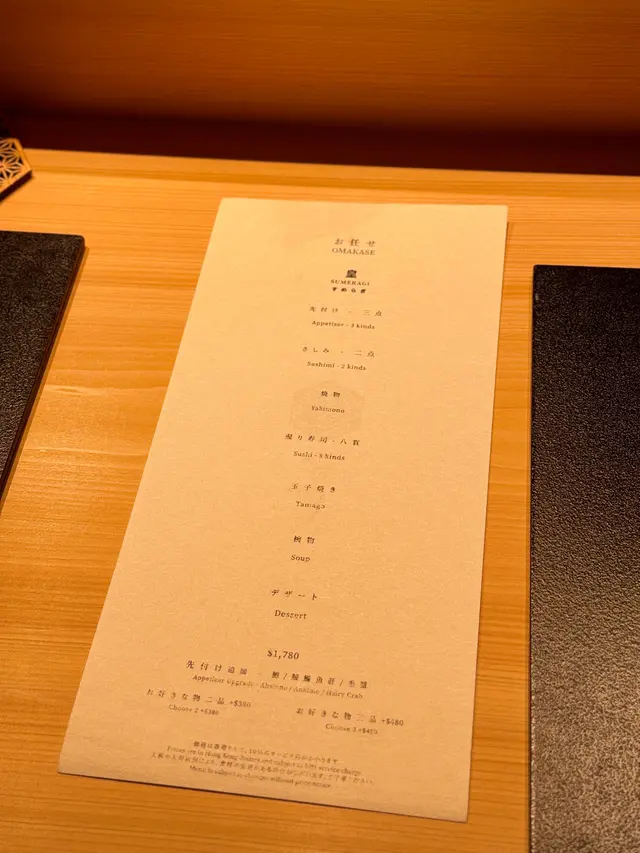 お任せ
OMAKASE
皇
SUMERAGI
すめらぎ
先付け - 三点
Appetizer - 3 kinds
さしみ - 二点
Sashimi - 2 kinds
焼物
Yakimono
握り寿司 - 八貫
Sushi - 8 kinds
玉子焼き
Tamago
椀物
Soup
デザート
Dessert
$1,780
先付け追加
Appetizer Upgrade - Abalone / Ankimo / Hairy Crab
お好きな物二品 +$380
お好きな物三品 +$480
Choose 2 +$380
Choose 3 +$480
Prices are in Hong Kong dollars and subject to 10% service charge.
Menu is subject to changes without prior notice.